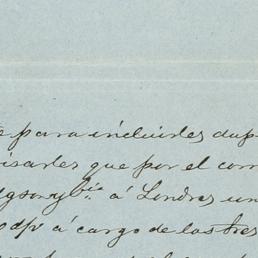 para incluirles dup
isarles que por el corr
y bia. á Londres un
d/v á cargo de los tres